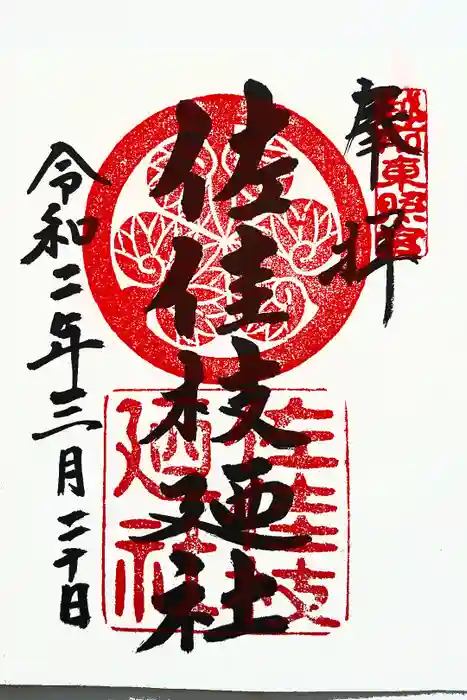 奉拝
越前東照宮
佐佳枝廼社
佐佳枝廼社
令和二年三月二十日